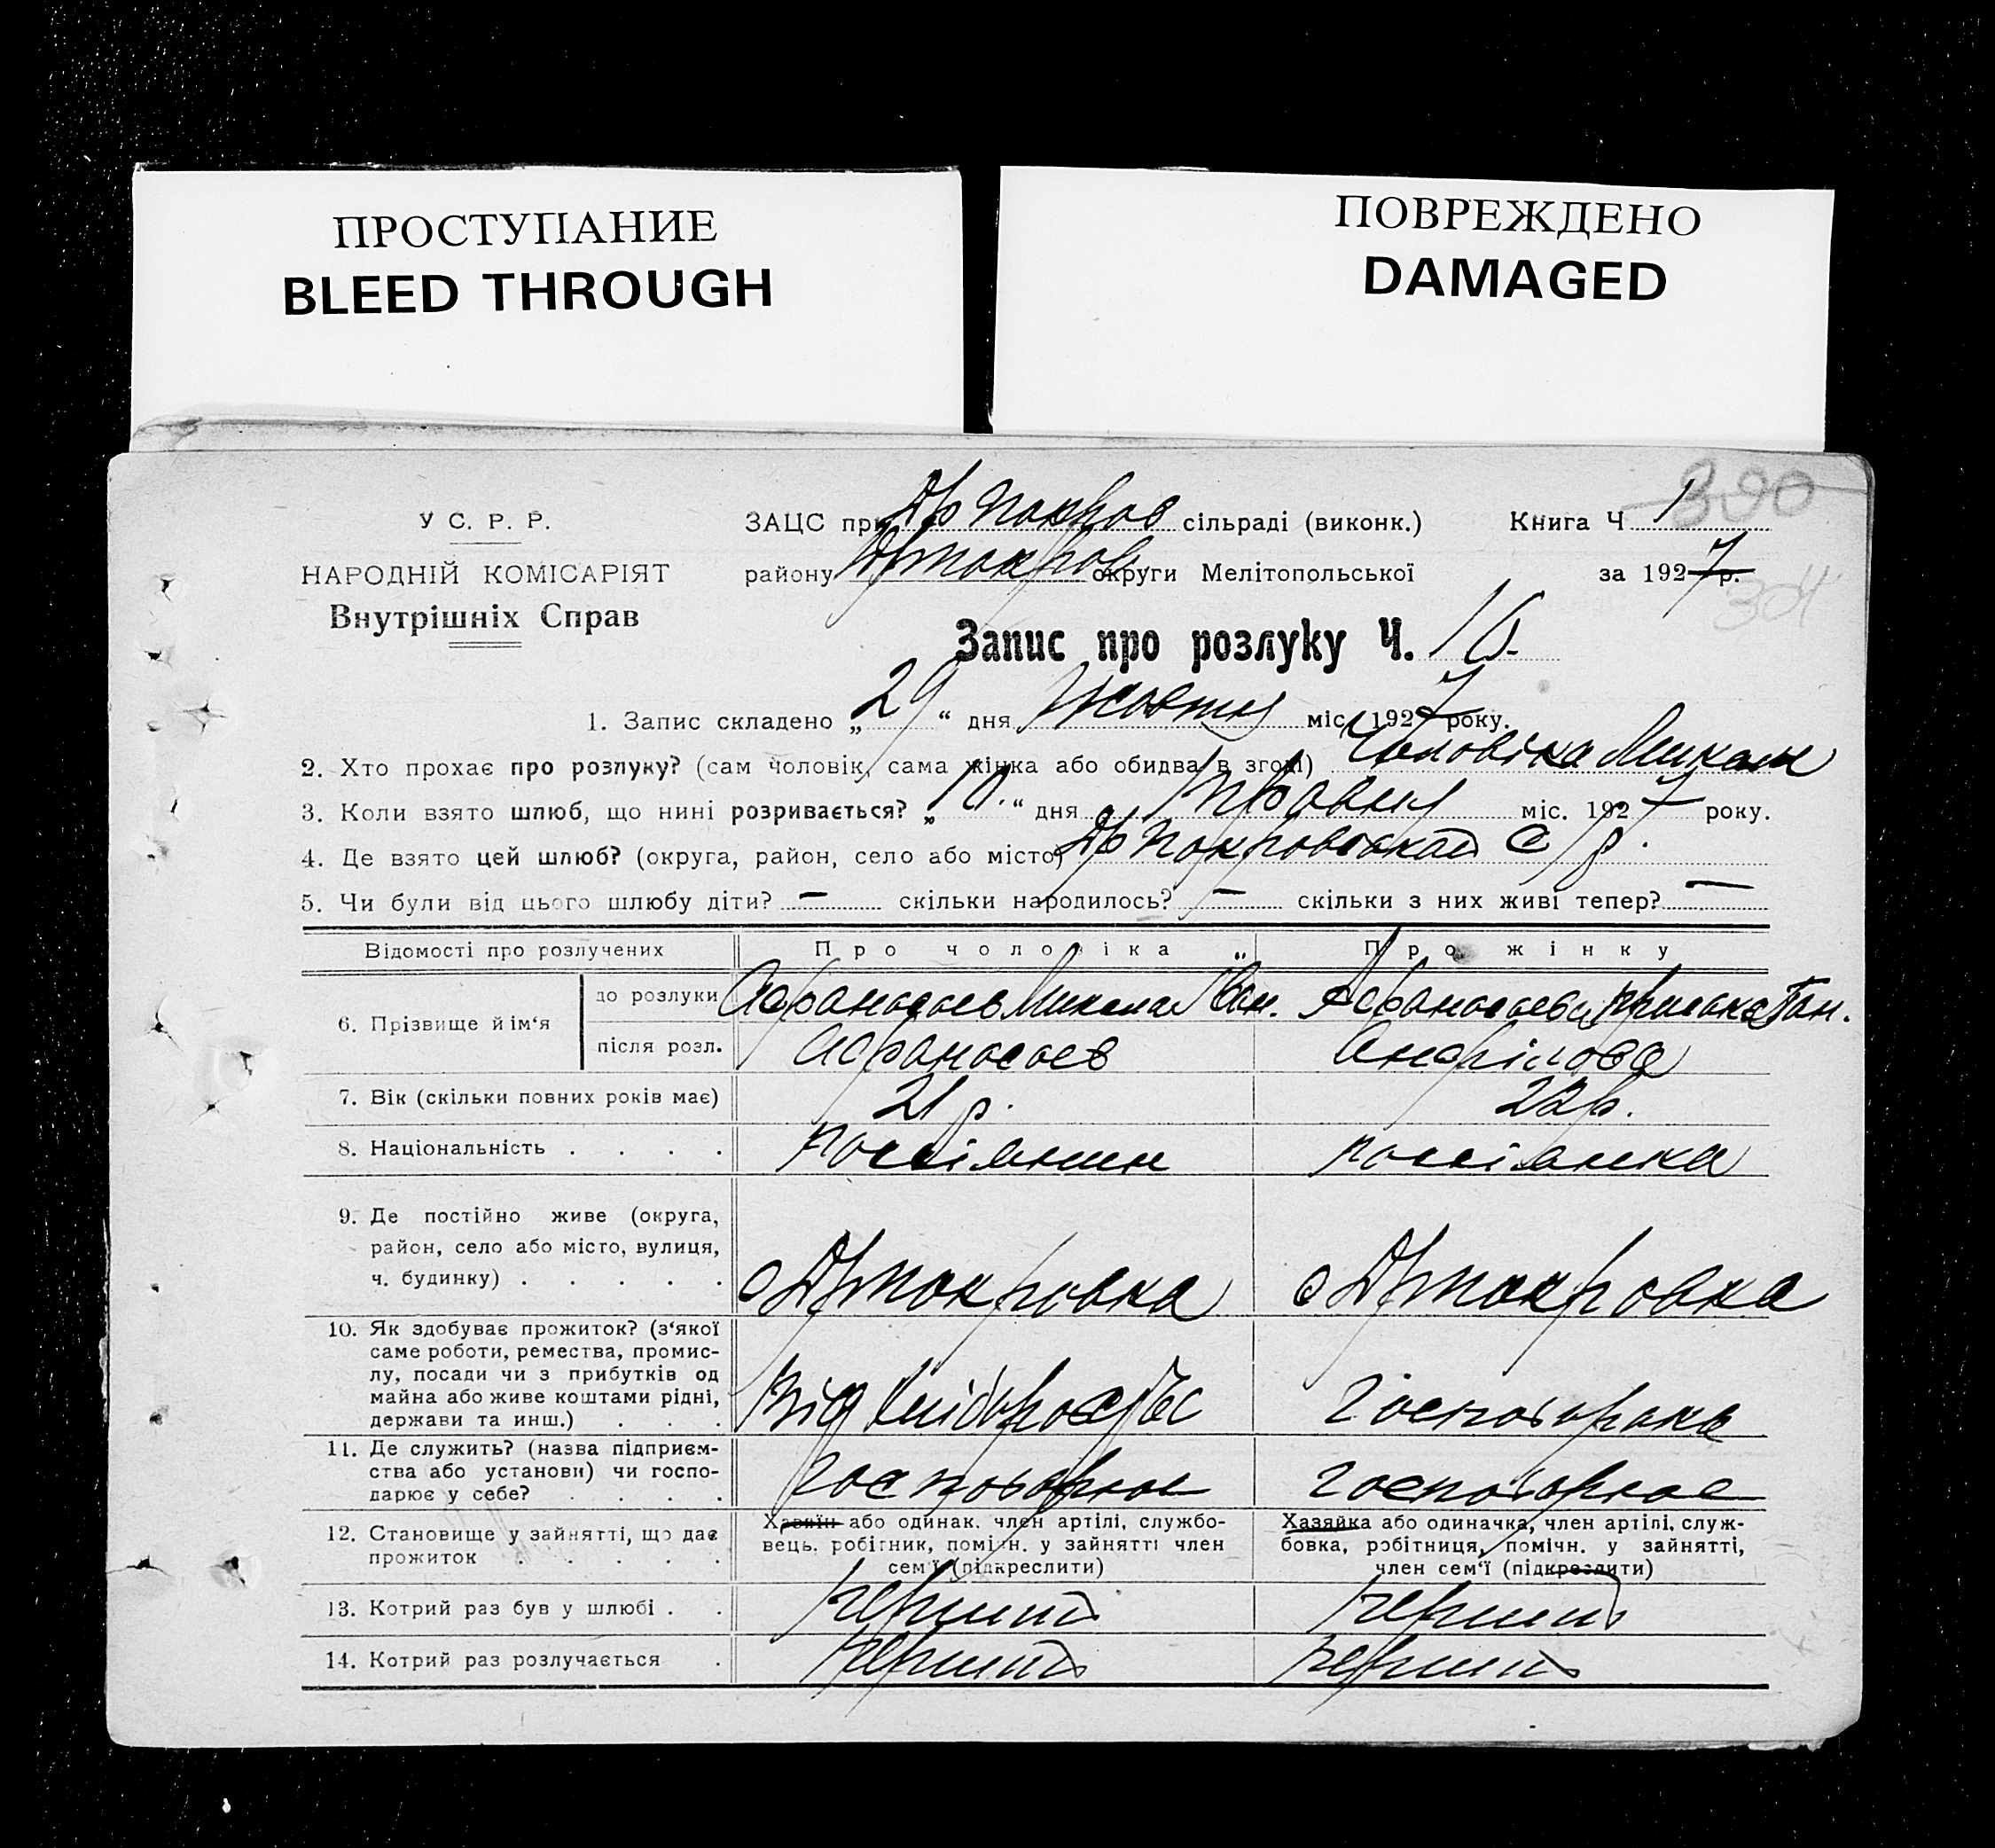 ПРОСТУПАНИЕ
BLEED THROUGH
ПОВРЕЖДЕНО
DAMAGED
390
304
У С. Р. Р.
НАРОДНІЙ КОМІСАРІЯТ
Внутрішніх Справ
ЗАЦС при Др Покров сільраді (виконк.) Книга Ч 1
району Дрпокров округи Мелітопольської за 1927 р.
Запис про розлуку Ч. 16.
1. Запис складено „29“ дня Жовтня міс. 1927 року.
2. Хто прохає про розлуку? (сам чоловік, сама жінка або обидва в згоді) Чоловіка Микола
3. Коли взято шлюб, що нині розривається? „10.“ дня Травня міс. 1927 року.
4. Де взято цей шлюб? (округа, район, село або місто) Др Покровській с/р.
5. Чи були від цього шлюбу діти? — скільки народилось? — скільки з них живі тепер? —
Відомості про розлучених Про чоловіка Про жінку
6. Прізвище й ім‘я до розлуки Афанасаєв Микола Іван. Афанасаєва Ган.
після розл. Афанасаєв Анфілова
7. Вік (скільки повних років має) 21 р. 22 р.
8. Національність . . . . россіянин россіянка
9. Де постійно живе (округа,
район, село або місто, вулиця,
ч. будинку) . . . . . с Дрпокровка с Дрпокровка
10. Як здобуває прожиток? (з‘якої
саме роботи, ремества, промис-
лу, посади чи з прибутків од
майна або живе коштами рідні,
держави та инш.) . . . Від Господарка
11. Де служить? (назва підприєм-
ства або установи) чи госпо-
дарює у себе? . . . . господарює господарює
12. Становище у зайнятті, що дає
прожиток . . . . .
Хазяїн або одинак. член артілі, службо-
вець. робітник, помічн. у зайнятті член
сем‘ї (підкреслити)
Хазяйка або одиначка, член артілі, служ-
бовка, робітниця, помічн. у зайнятті,
член сем‘ї (підкреслити)
13. Котрий раз був у шлюбі . . перший перший
14. Котрий раз розлучається . перший перший